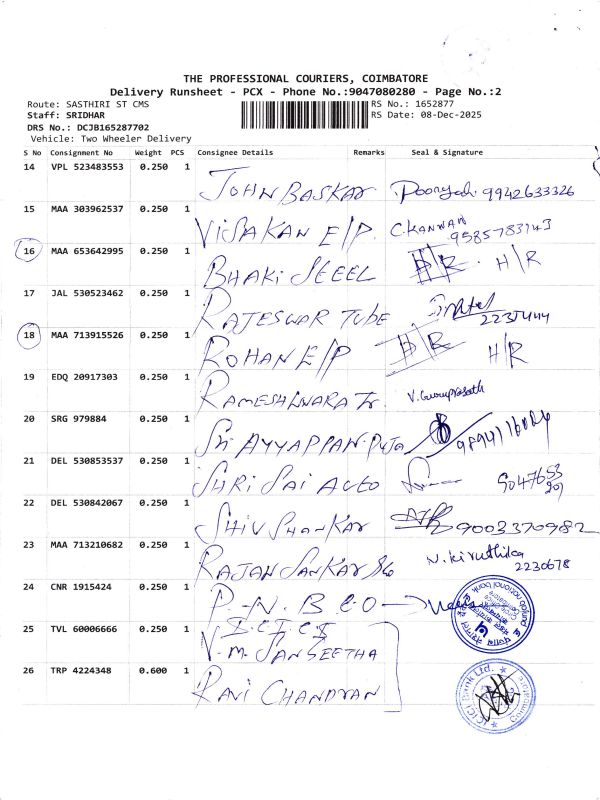 THE PROFESSIONAL COURIERS, COIMBATORE
Delivery Runsheet - PCX - Phone No.:9047080280 - Page No.:2
Route: SASTHIRI ST CMS
RS No.: 1652877
Staff: SRIDHAR
RS Date: 08-Dec-2025
DRS No.: DCJB165287702
Vehicle: Two Wheeler Delivery
S No Consignment No Weight PCS Consignee Details Remarks Seal & Signature
14 VPL 523483553 0.250 1 JOHN BASKAR 9942633326
15 MAA 303962537 0.250 1 VISAKAN E/P. C.KANNAN
9585783143
16 MAA 653642995 0.250 1 BHAKI STEEL H/R H/R
17 JAL 530523462 0.250 1 RAJESWAR TUBE
2235444
18 MAA 713915526 0.250 1 ROHAN E/P H/R H/R
19 EDQ 20917303 0.250 1 RAMESHWARA Tr. V. Guruprasath
20 SRG 979884 0.250 1 Sri AYYAPPAN PUJA
21 DEL 530853537 0.250 1 SHRI SAI AUTO 9047653
201
22 DEL 530842067 0.250 1 SHIV SHANKAR 9003370982
23 MAA 713210682 0.250 1 RAJAN SANKAR &Co N. Kiruthika
2230678
24 CNR 1915424 0.250 1 P.N.B C.O
I.C.I.C.I
25 TVL 60006666 0.250 1 V.M. SANGEETHA
26 TRP 4224348 0.600 1 RAVI CHANDRAN
punjab national bank
ICICI Bank Ltd.
Coimbatore